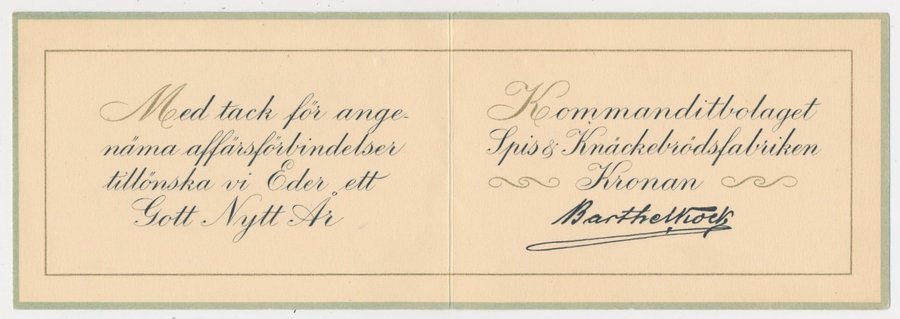 Med tack för ange-
näma affärsförbindelser
tillönska vi Eder ett
Gott Nytt År
Kommanditbolaget
Spis & Knäckebrödsfabriken
Kronan